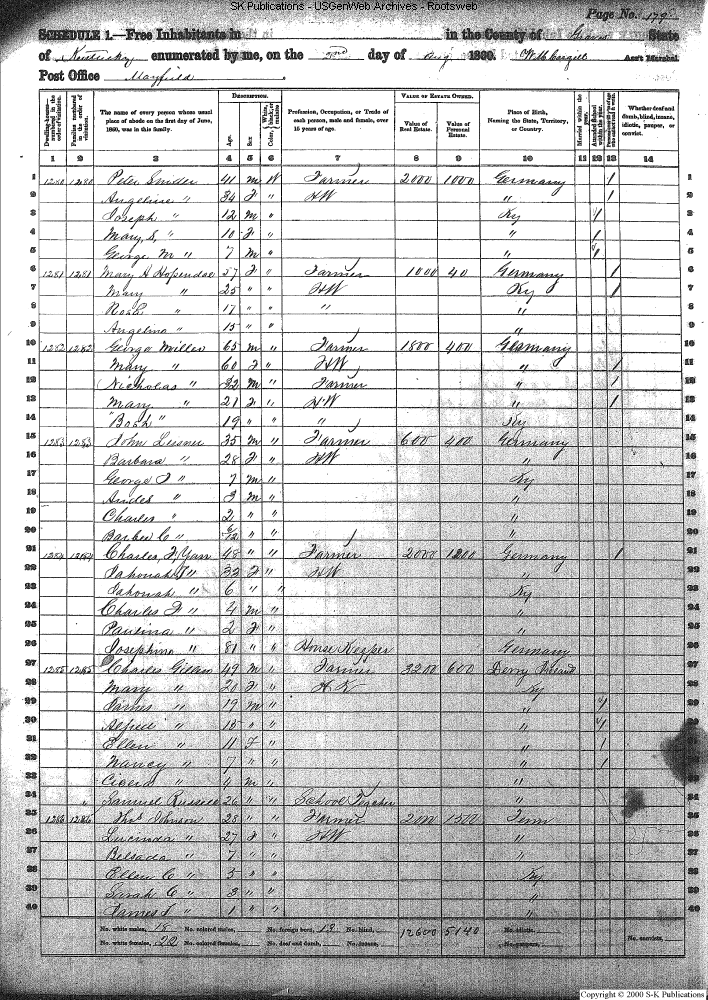 SK Publications - USGenWeb Archives - Rootsweb
Page No. 179
SCHEDULE 1.—Free Inhabitants in in the County of Graves State
of Kentucky enumerated by me, on the 2nd day of Aug 1860. Ass't Marshal
Post Office Mayfield
Dwelling-houses—numbered in the order of visitation. Families numbered in the order of visitation. The name of every person whose usual place of abode on the first day of June, 1860, was in this family. DESCRIPTION. Age. Sex Color, White, black, or mulatto Profession, Occupation, or Trade of each person, male and female, over 15 years of age. VALUE OF ESTATE OWNED. Value of Real Estate. Value of Personal Estate. Place of Birth, Naming the State, Territory, or Country. Married within the year. Attended School within the year. Whether deaf and dumb, blind, insane, idiotic, pauper, or convict.
1 2 3 4 5 6 7 8 9 10 11 12 13 14
1 1280 1280 Peter Snider 41 M W Farmer 2000 1000 Germany / 1
2 Angeline " 34 F " HW " / 2
3 Joseph " 12 M " Ky / 3
4 Mary, S, " 10 F " " / 4
5 George M " 7 M " " / 5
6 1281 1281 Mary H 57 F " Farmer 1000 40 Germany / 6
7 Mary " 25 " " HW Ky / 7
8 " 17 " " " " 8
9 Angelina " 15 " " " 9
10 1282 1282 George Miller 65 M " Farmer 1800 400 Germany 10
11 Mary " 60 F " HW " / 11
12 Nicholas " 32 M " Farmer " / 12
13 Mary " 21 F " HW " / 13
14 " 19 " " " Ky 14
15 1283 1283 John 35 M " Farmer 600 400 Germany 15
16 Barbara " 28 F " HW " 16
17 George F " 7 M " Ky 17
18 Andes " 3 M " " 18
19 Charles " 2 " " " 19
20 C " 6/12 " " " 20
21 1284 1284 Charles, F 48 " " Farmer 2000 1200 Germany / 21
22 " 32 F " HW " 22
23 " 6 " " Ky 23
24 Charles F " 4 M " " 24
25 Paulina " 2 F " " 25
26 Josephine " 81 " " House Keeper Germany 26
27 1285 1285 Charles 49 M " Farmer 3200 600 Derry Ireland 27
28 Mary " 20 F " H K Ky 28
29 James " 19 M " " / 29
30 Alfred " 15 " " " / 30
31 Ellen " 11 F " " / 31
32 Nancy " 7 " " " / 32
33 Cicero " 4 M " " 33
34 " Samuel Russell 26 " " School Teacher " 34
35 1286 1286 Thos Johnson 28 " " Farmer 2000 1500 Tenn 35
36 Lucinda " 27 F " HW " 36
37 " 7 " " " 37
38 Ellen C " 5 " " Ky 38
39 Sarah C " 3 " " " 39
40 James T " 1 " " " 40
No. white males, 18 No. colored males, No. foreign born, No. blind, 12600 5140 No. idiotic,
No. white females, 22 No. colored females, No. deaf and dumb, No. insane, No. paupers, No. convicts,
Copyright © 2000 S-K Publications